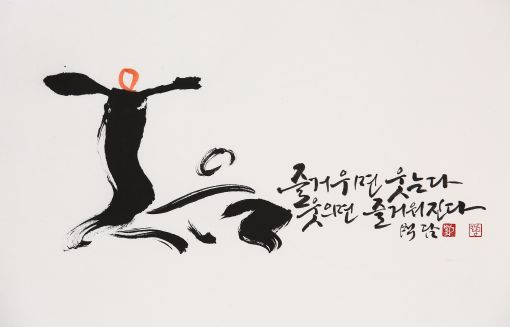 즐거우면 웃는다
웃으면 즐거워진다